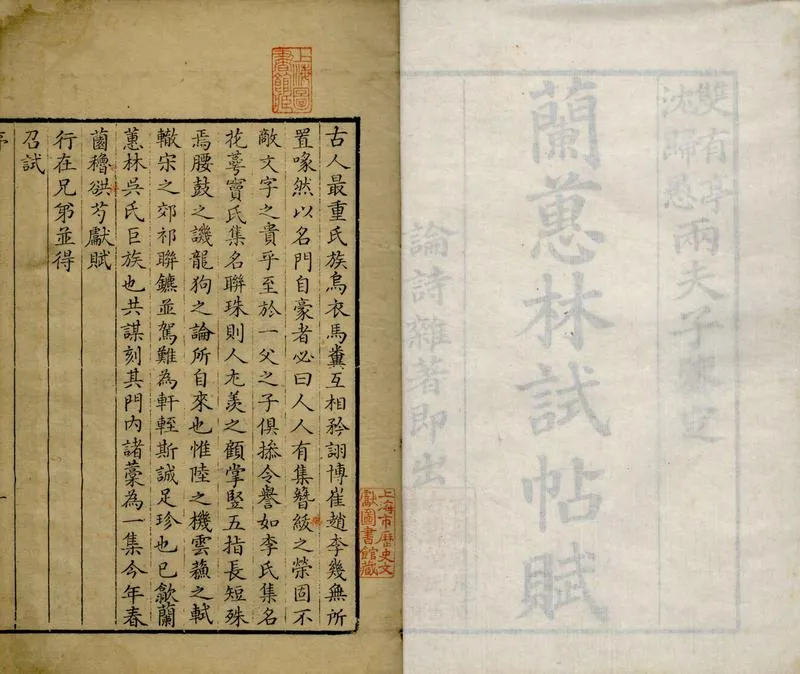 雙有亭
沈歸愚
兩夫子鑒定
蘭蕙林試帖賦
論詩雜著即出
上海圖書館藏
上海市歷史文獻圖書館藏
古人最重氏族烏衣馬糞互相矜詡博崔趙李幾無所
置喙然以名門自豪者必曰人人有集簪紱之榮固不
敵文字之貴乎至於一父之子俱摻令譽如李氏集名
花萼竇氏集名聯珠則人尤羨之顧掌竪五指長短殊
焉腰鼓之譏龍狗之論所自來也惟陸之機雲蘓之軾
轍宋之郊祁聯鑣並駕難為軒輊斯誠足珍也已歙蘭
蕙林吳氏巨族也共謀刻其門內諸藁為一集今年春
薗穭谼芍獻賦
行在兄弟並得
召試